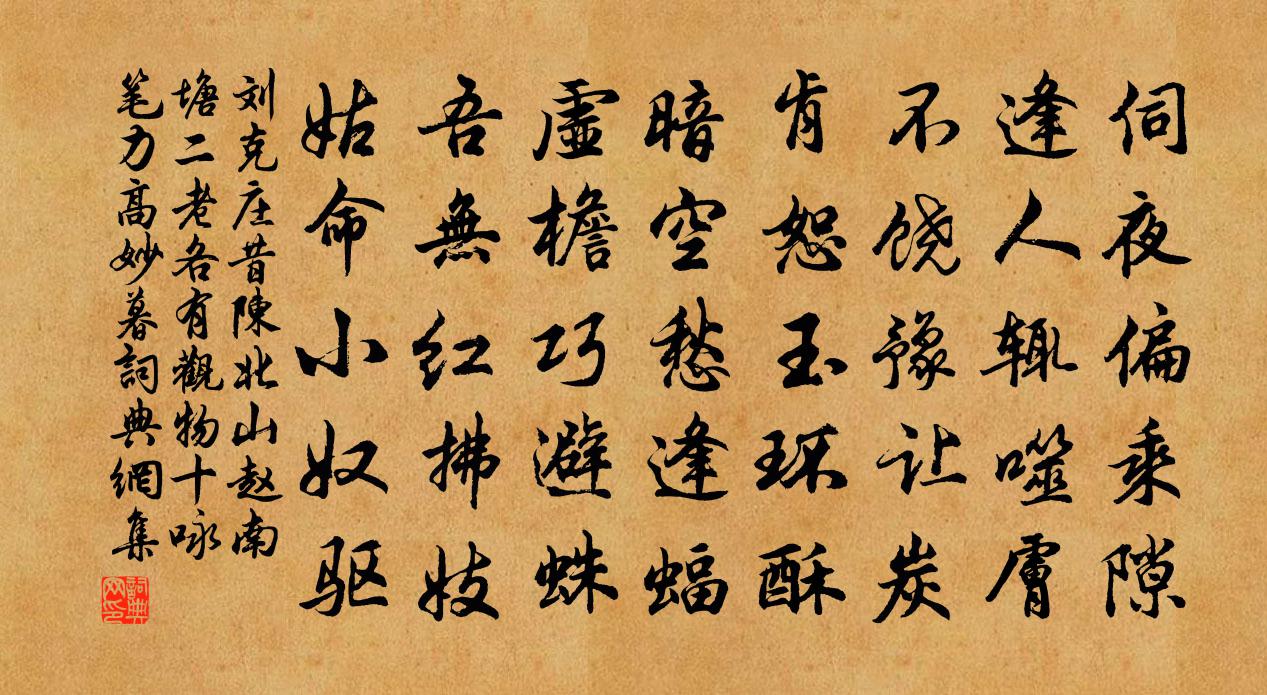 伺夜偏乘隙
逢人辄噬膚
不饶豫让炭
肯恕玉环酥
暗空愁逢蝠
虚檐巧避蛛
吾無红拂妓
姑命小奴驱
刘克庄昔陳北山赵南
塘二老各有觀物十咏
笔力高妙暮詞典網集
詞典网印